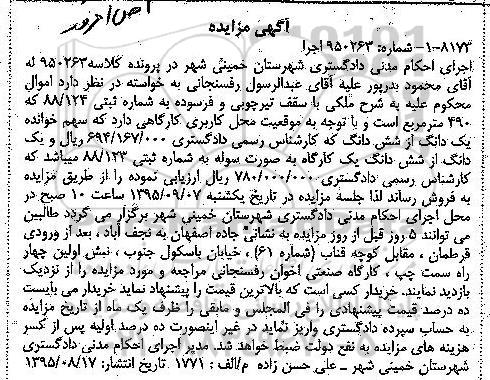 اص امروز
آگهی مزایده
۸۱۷۳-۱- شماره: ۹۵۰۲۶۳ اجرا
اجرای احکام مدنی دادگستری شهرستان خمینی شهر در پرونده کلاسه۹۵۰۲۶۳ له
آقای محمود بدرپور علیه آقای عبدالرسول رفسنجانی به خواسته در نظر دارد اموال
محکوم علیه به شرح ملکی با سقف تیرچوبی و فرسوده به شماره ثبتی ۸۸/۱۲۴ که
۴۹۰ مترمربع است و با توجه به موقعیت محل کاربری کارگاهی دارد که سهم خوانده
یک دانگ از شش دانگ که کارشناس رسمی دادگستری ۶۹۴/۱۶۷/۰۰۰ ریال و یک
دانگ از شش دانگ یک کارگاه به صورت سوله به شماره ثبتی ۸۸/۱۲۳ میباشد که
کارشناس رسمی دادگستری ۷۸۰/۰۰۰/۰۰۰ ریال ارزیابی نموده را از طریق مزایده
به فروش رساند لذا جلسه مزایده در تاریخ یکشنبه ۱۳۹۵/۰۹/۰۷ ساعت ۱۰ صبح در
محل اجرای احکام مدنی دادگستری شهرستان خمینی شهر برگزار می گردد طالبین
می توانند ۵ روز قبل از روز مزایده به نشانی جاده اصفهان به نجف آباد ، بعد از ورودی
قرطمان ، مقابل کوچه قناب (شماره ۶۱) ، خیابان باسکول جنوب ، نبش اولین چهار
راه سمت چپ ، کارگاه صنعتی اخوان رفسنجانی مراجعه و مورد مزایده را از نزدیک
بازدید نمایند. خریدار کسی است که بالاترین قیمت را پیشنهاد نماید خریدار می بایست
ده درصد قیمت پیشنهادی را فی المجلس و مابقی را ظرف یک ماه از تاریخ مزایده
به حساب سپرده دادگستری واریز نماید در غیر اینصورت ده درصد اولیه پس از کسر
هزینه های مزایده به نفع دولت ضبط خواهد شد. مدیر اجرای احکام مدنی دادگستری
شهرستان خمینی شهر ـ علی حسن زاده م/الف : ۱۷۷۱ تاریخ انتشار: ۱۳۹۵/۰۸/۱۷